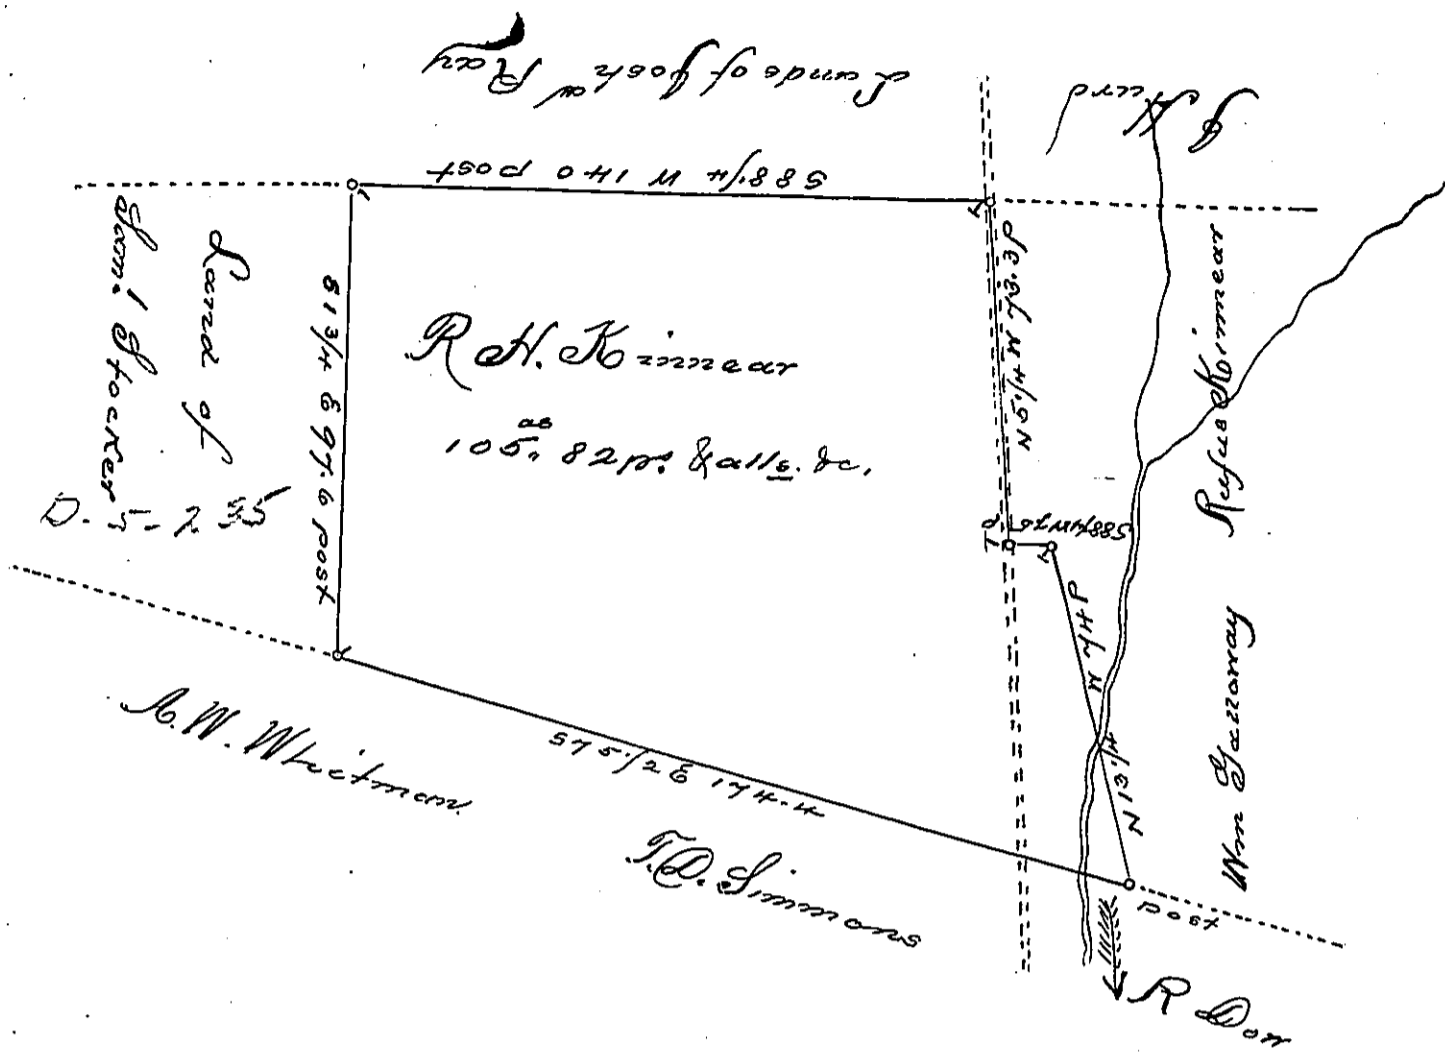 Lands of Josh W Ray
J Hurd
S 88 1/4 W 140 post
Land of
Sam'l Stocker
D. 5 - 235
S 1 3/4 E 97.6 post
R H. Kinnear
105 as 82 ps. & alls. &c.
N 5 1/4 W 73.3 P
S 88 1/4 W 7.6
P
N 13 1/4 W 74 P
Rufus Kinnear
Wm Gazzoway
A. W. Whitman
S 75 1/2 E 174.4
T. D. Simmons
post
R Dow